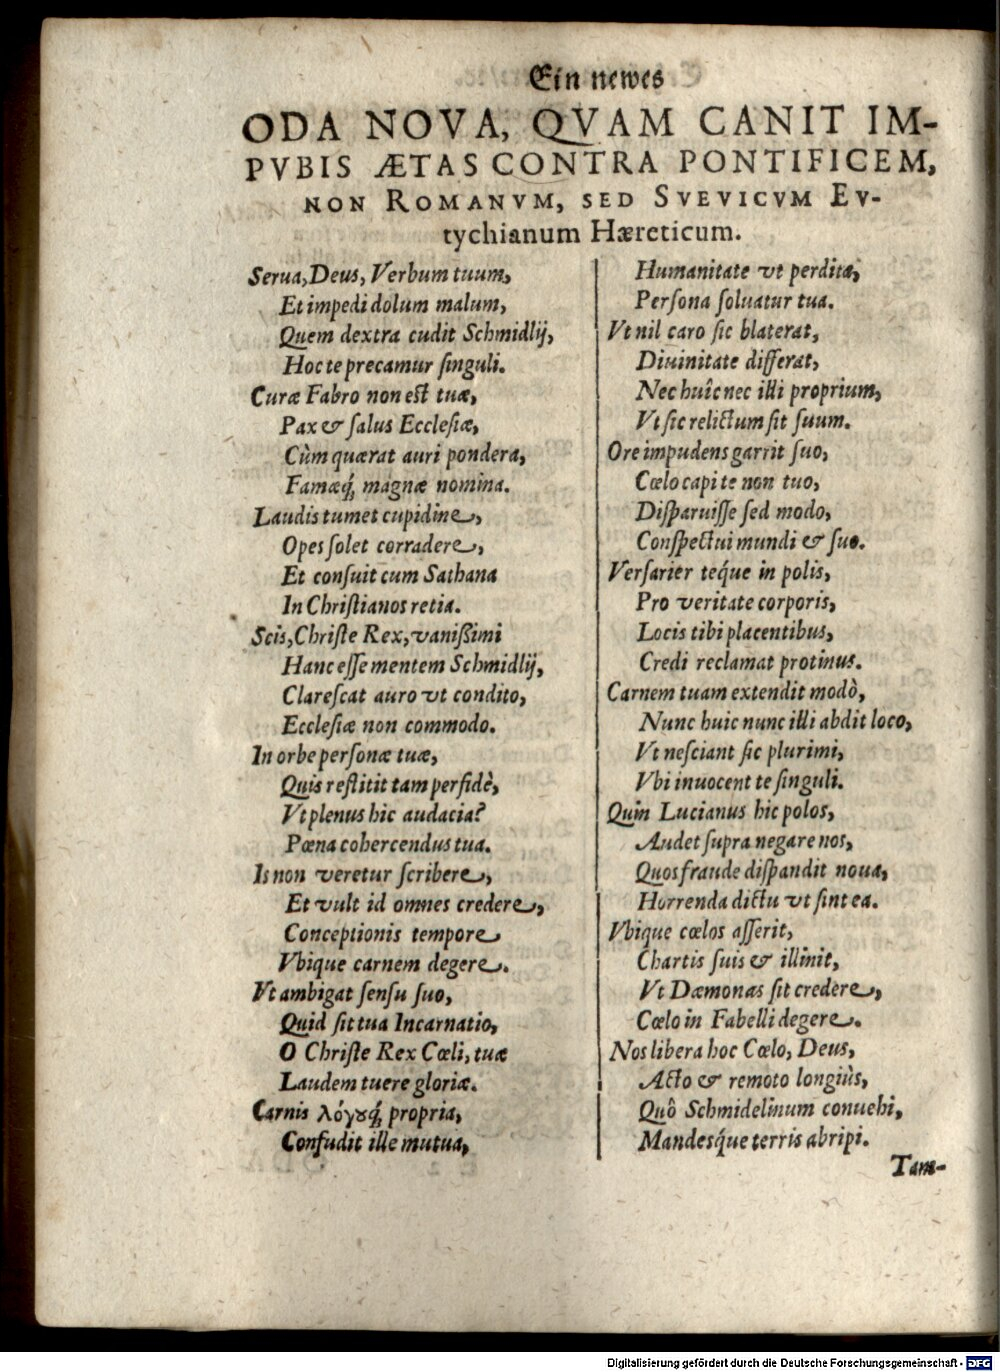 Ein newes
ODA NOVA, QVAM CANIT IM-
PVBIS ÆTAS CONTRA PONTIFICEM,
NON ROMANVM, SED SVEVICVM EV-
tychianum Hæreticum.
Serua, Deus, Verbum tuum,
Et impedi dolum malum,
Quem dextra cudit Schmidlij,
Hoc te precamur ſinguli.
Curæ Fabro non eſt tuæ,
Pax & ſalus Eccleſiæ,
Cùm quærat auri pondera,
Famæq́; magnæ nomina.
Laudis tumet cupidine,
Opes ſolet corradere,
Et conſuit cum Sathana
In Chriſtianos retia.
Scis, Chriſte Rex, vanißimi
Hanc eſſe mentem Schmidlij,
Clareſcat auro vt condito,
Eccleſiæ non commodo.
In orbe perſonæ tuæ,
Quis reſtitit tam perfidè,
Vt plenus hic audacia?
Pœna cohercendus tua.
Is non veretur ſcribere,
Et vult id omnes credere,
Conceptionis tempore
Vbique carnem degere.
Vt ambigat ſenſu ſuo,
Quid ſit tua Incarnatio,
O Chriſte Rex Cœli, tuæ
Laudem tuere gloriæ.
Carnis λόγȣq́; propria,
Confudit ille mutua,
Humanitate vt perdita,
Perſona ſoluatur tua.
Vt nil caro ſic blaterat,
Diuinitate differat,
Nec huîc nec illi proprium,
Vt ſic relictum ſit ſuum.
Ore impudens garrit ſuo,
Cœlo capi te non tuo,
Diſparuiſſe ſed modo,
Conſpectui mundi & ſuo.
Verſarier teq́ue in polis,
Pro veritate corporis,
Locis tibi placentibus,
Credi reclamat protinus.
Carnem tuam extendit modò,
Nunc huic nunc illi abdit loco,
Vt neſciant ſic plurimi,
Vbi inuocent te ſinguli.
Quin Lucianus hic polos,
Audet ſupra negare nos,
Quos fraude diſpandit noua,
Horrenda dictu vt ſint ea.
Vbique cœlos aſſerit,
Chartis ſuis & illinit,
Vt Dæmonas ſit credere,
Cœlo in Fabelli degere.
Nos libera hoc Cœlo, Deus,
Acto & remoto longiùs,
Quô Schmidelinum conuehi,
Mandesq́ue terris abripi.
Tam-
Digitalisierung gefördert durch die Deutsche Forschungsgemeinschaft - DFG